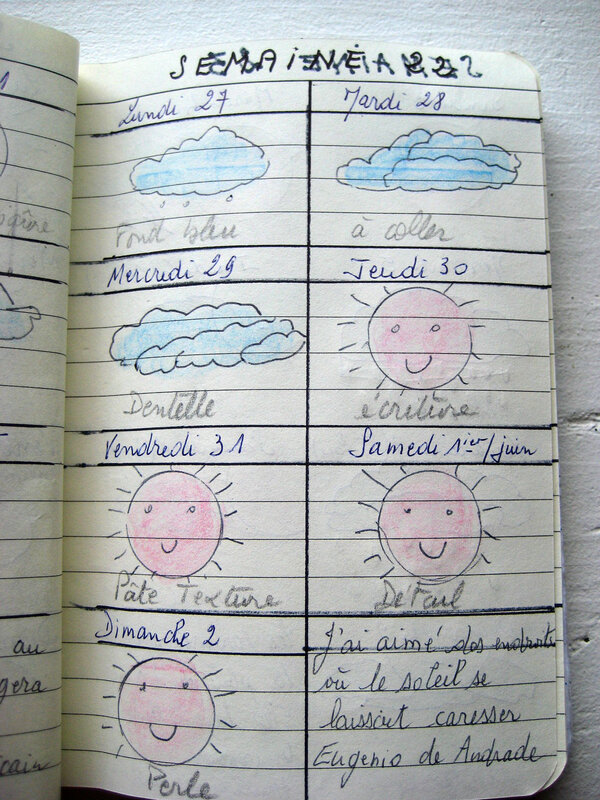 SEMAINE 22
Lundi 27
Mardi 28
Fond bleu
à coller
Mercredi 29
Jeudi 30
Dentelle
écritüre
Vendredi 31
Samedi 1ier/juin
Pâte Texture
Détail
Dimanche 2
Perle
J'ai aimé des endroits
où le soleil se
laissait caresser
Eugenio de Andrade
au
gera